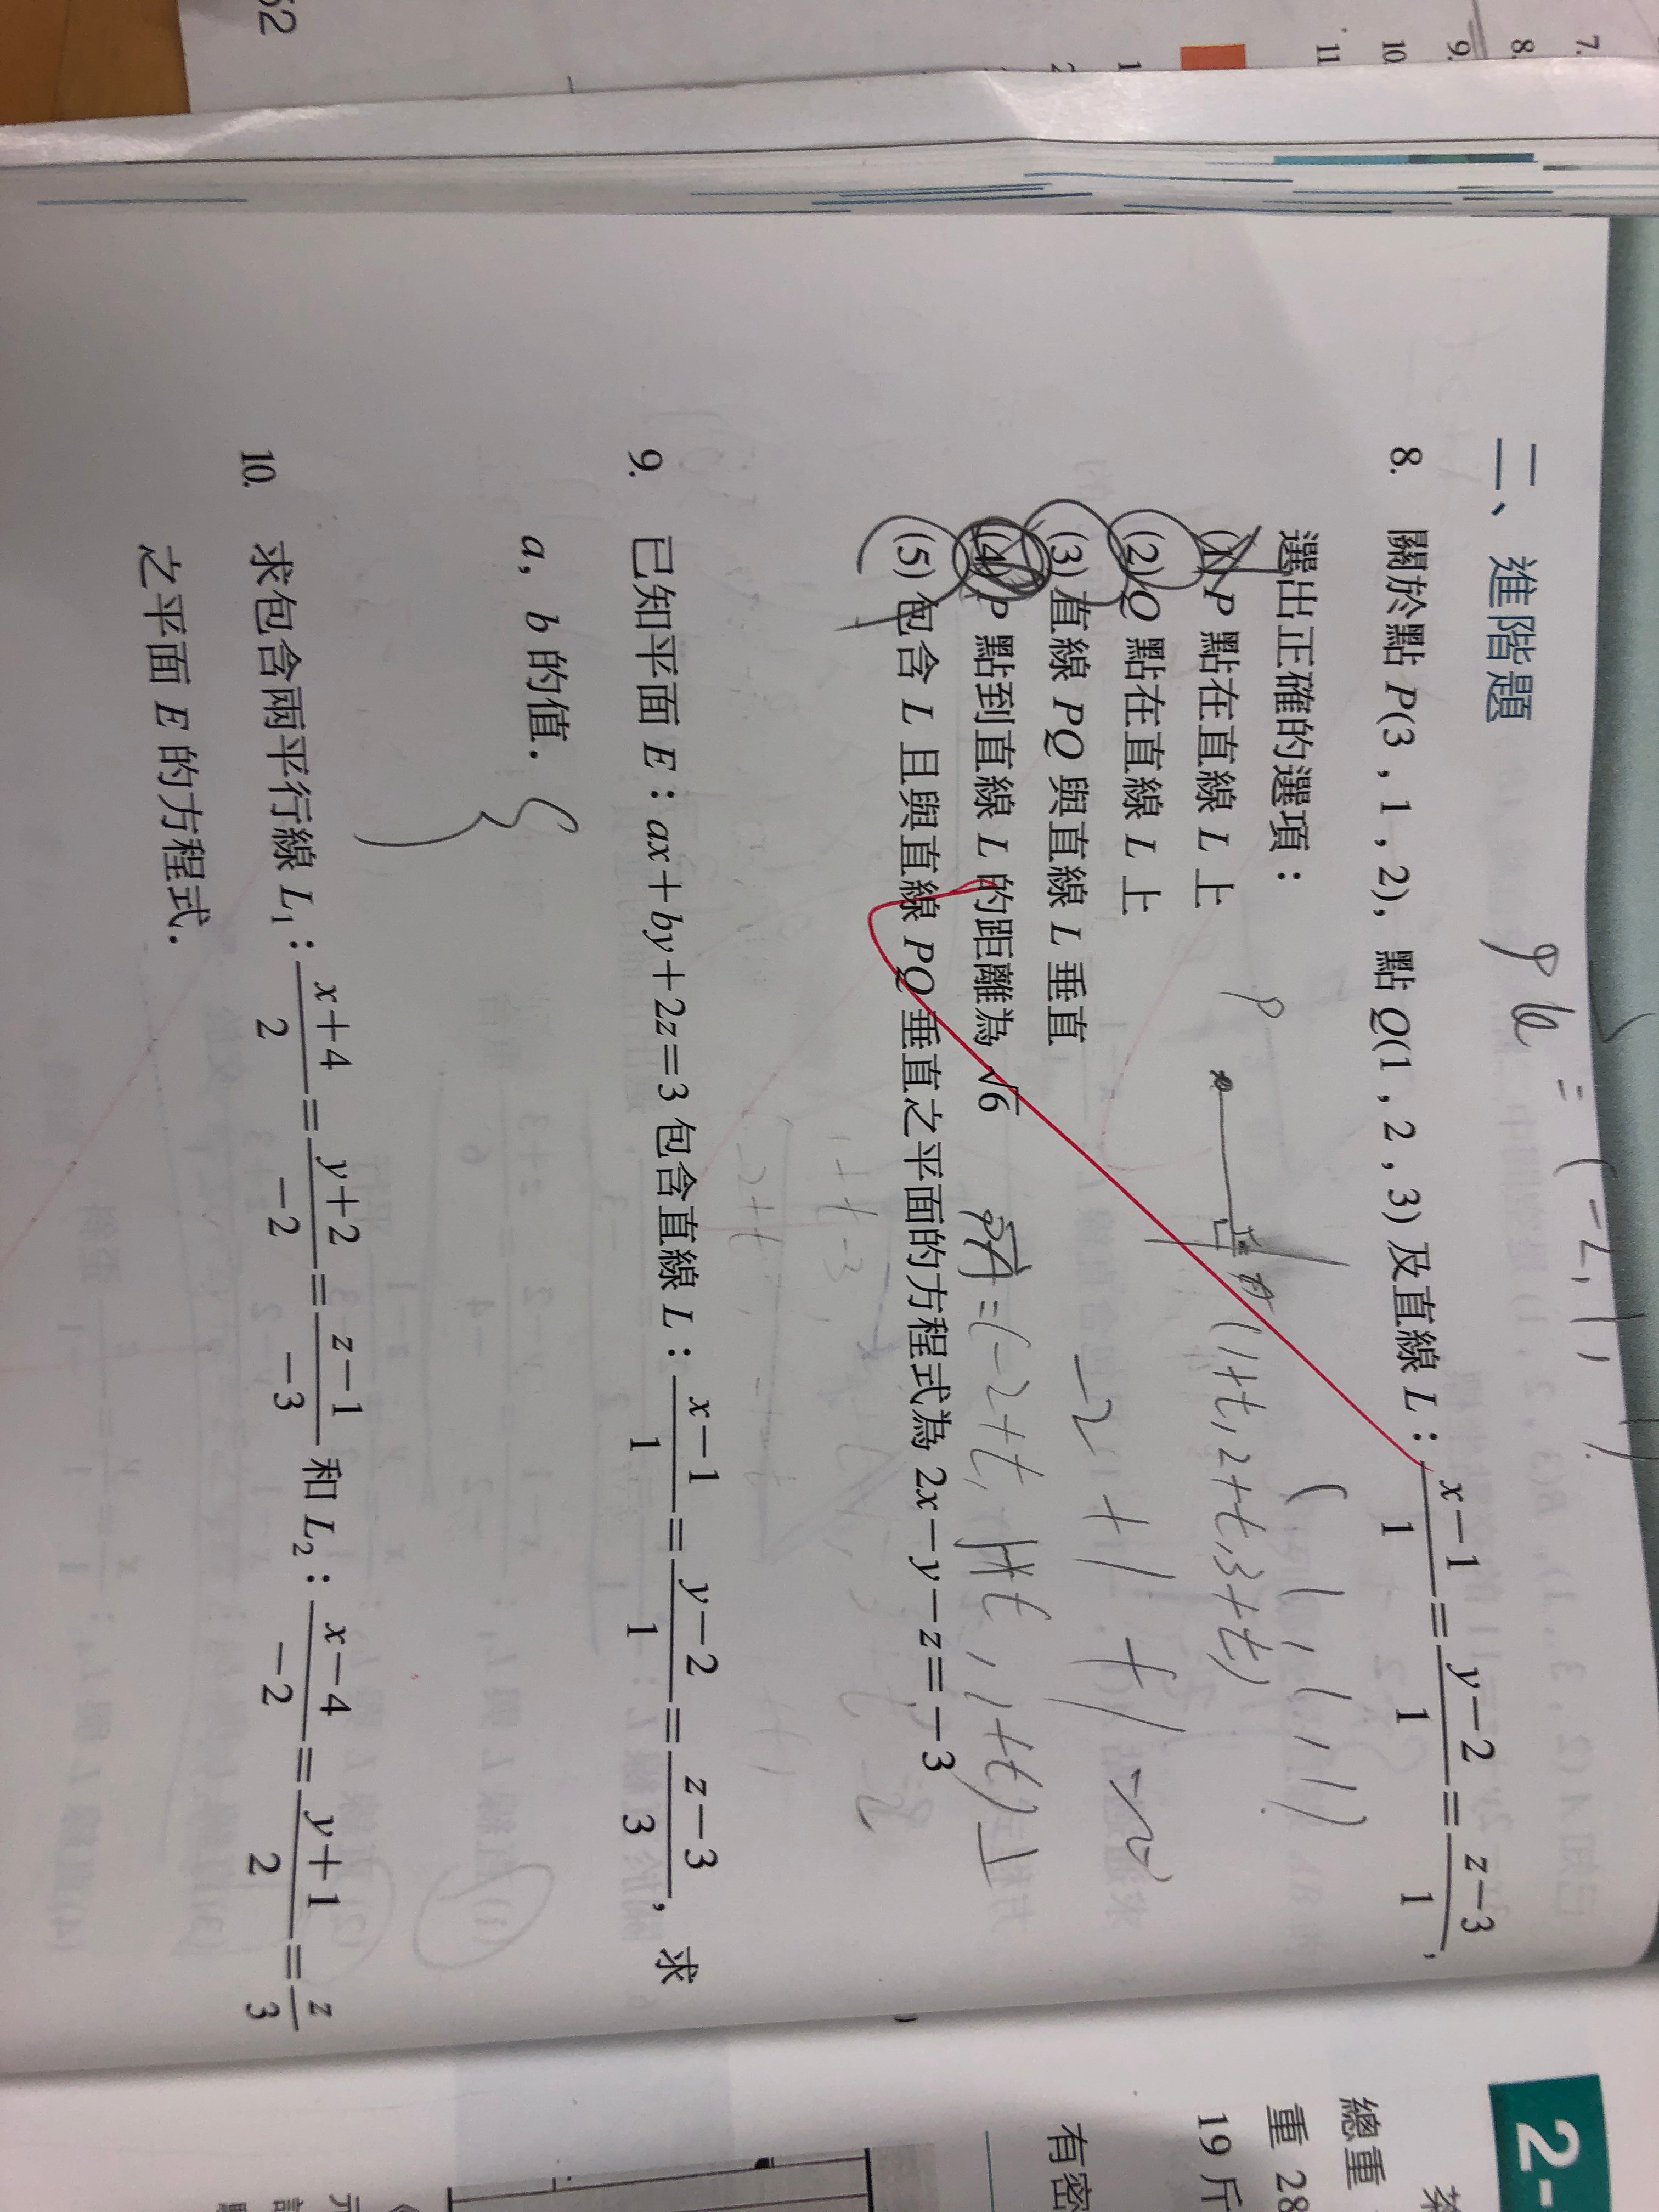 二、進階題
PQ = (-2, 1, 1)
8. 關於點 P(3 , 1 , 2),點 Q(1 , 2 , 3) 及直線 L:\frac{x-1}{1}=\frac{y-2}{1}=\frac{z-3}{1},
選出正確的選項:
(1, 1, 1)
(1) P 點在直線 L 上
P
(1+t, 2+t, 3+t)
(2) Q 點在直線 L 上
(3) 直線 PQ 與直線 L 垂直
-2+1+1
(4) P 點到直線 L 的距離為 √6
(5) 包含 L 且與直線 PQ 垂直之平面的方程式為 2x-y-z=-3
9. 已知平面 E:ax+by+2z=3 包含直線 L:\frac{x-1}{1}=\frac{y-2}{1}=\frac{z-3}{3},求
a,b 的值.
10. 求包含兩平行線 L₁:\frac{x+4}{2}=\frac{y+2}{-2}=\frac{z-1}{-3} 和 L₂:\frac{x-4}{-2}=\frac{y+1}{2}=\frac{z}{3}
之平面 E 的方程式.
7.
8.
9.
10
11
1
2
52
2-
總重
重 28
19 斤
有密